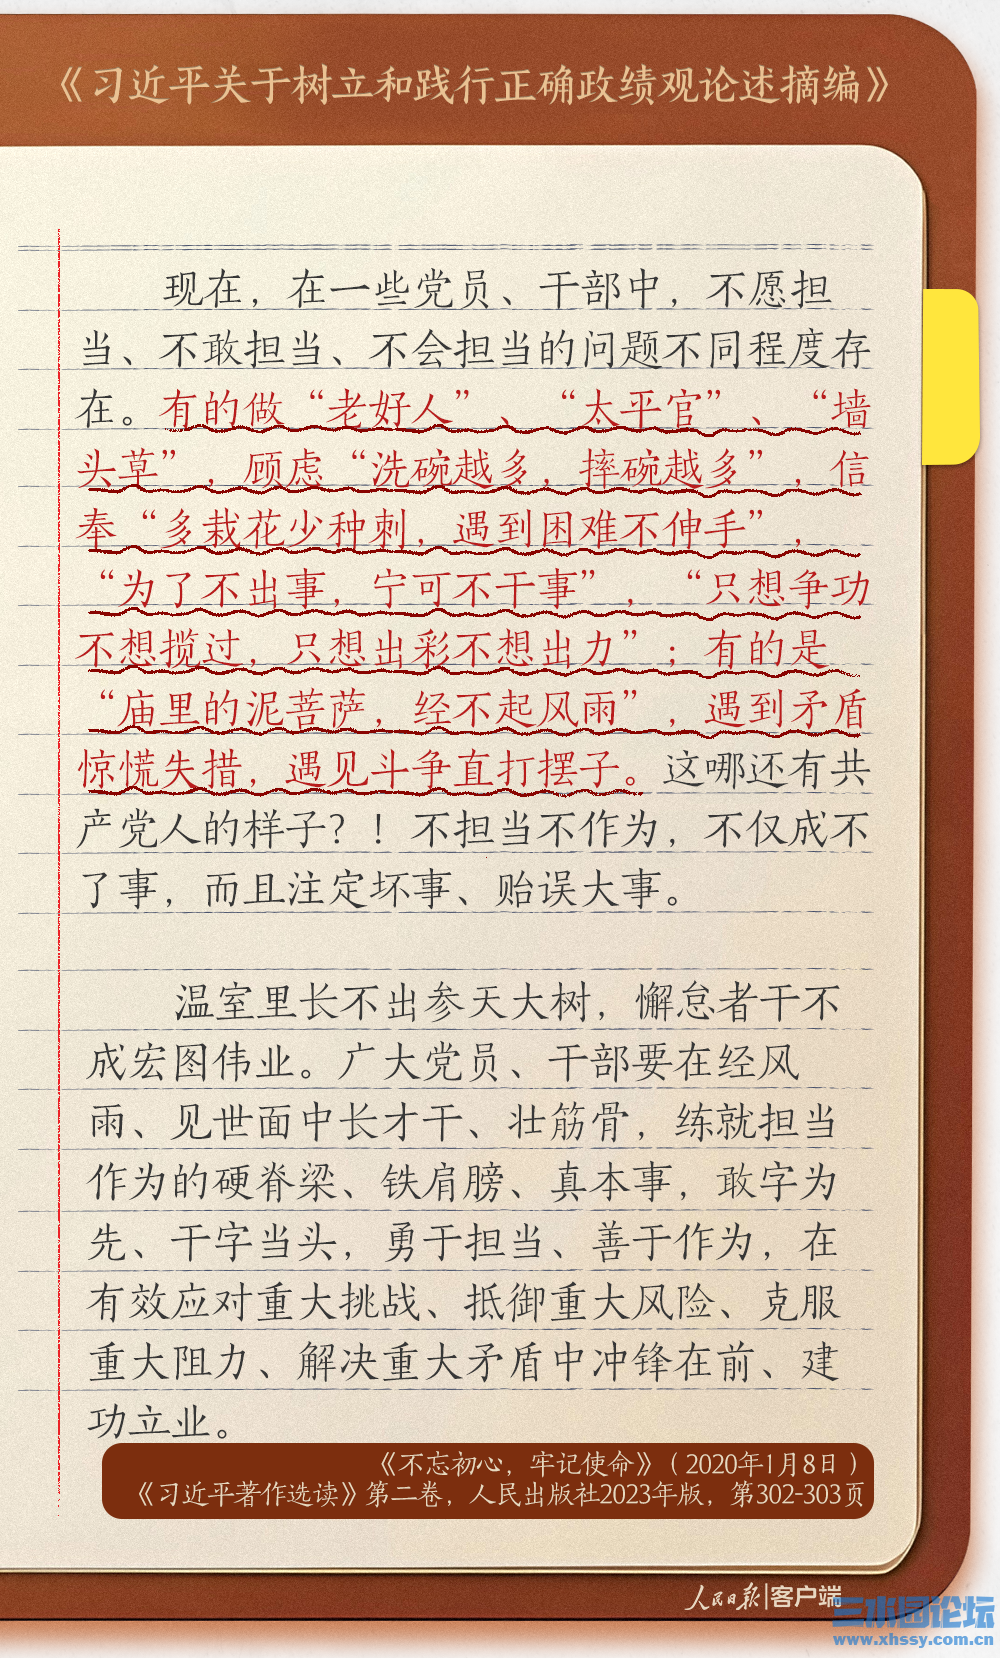 《习近平关于树立和践行正确政绩观论述摘编》
现在，在一些党员、干部中，不愿担
当、不敢担当、不会担当的问题不同程度存
在。有的做“老好人”、“太平官”、“墙
头草”，顾虑“洗碗越多，摔碗越多”，信
奉“多栽花少种刺，遇到困难不伸手”，
“为了不出事，宁可不干事”，“只想争功
不想揽过，只想出彩不想出力”；有的是
“庙里的泥菩萨，经不起风雨”，遇到矛盾
惊慌失措，遇见斗争直打摆子。这哪还有共
产党人的样子？！不担当不作为，不仅成不
了事，而且注定坏事、贻误大事。
温室里长不出参天大树，懈怠者干不
成宏图伟业。广大党员、干部要在经风
雨、见世面中长才干、壮筋骨，练就担当
作为的硬脊梁、铁肩膀、真本事，敢字为
先、干字当头，勇于担当、善于作为，在
有效应对重大挑战、抵御重大风险、克服
重大阻力、解决重大矛盾中冲锋在前、建
功立业。
《不忘初心，牢记使命》（2020年1月8日）
《习近平著作选读》第二卷，人民出版社2023年版，第302-303页
人民日报|客户端
三水园论坛
www.xhssy.com.cn